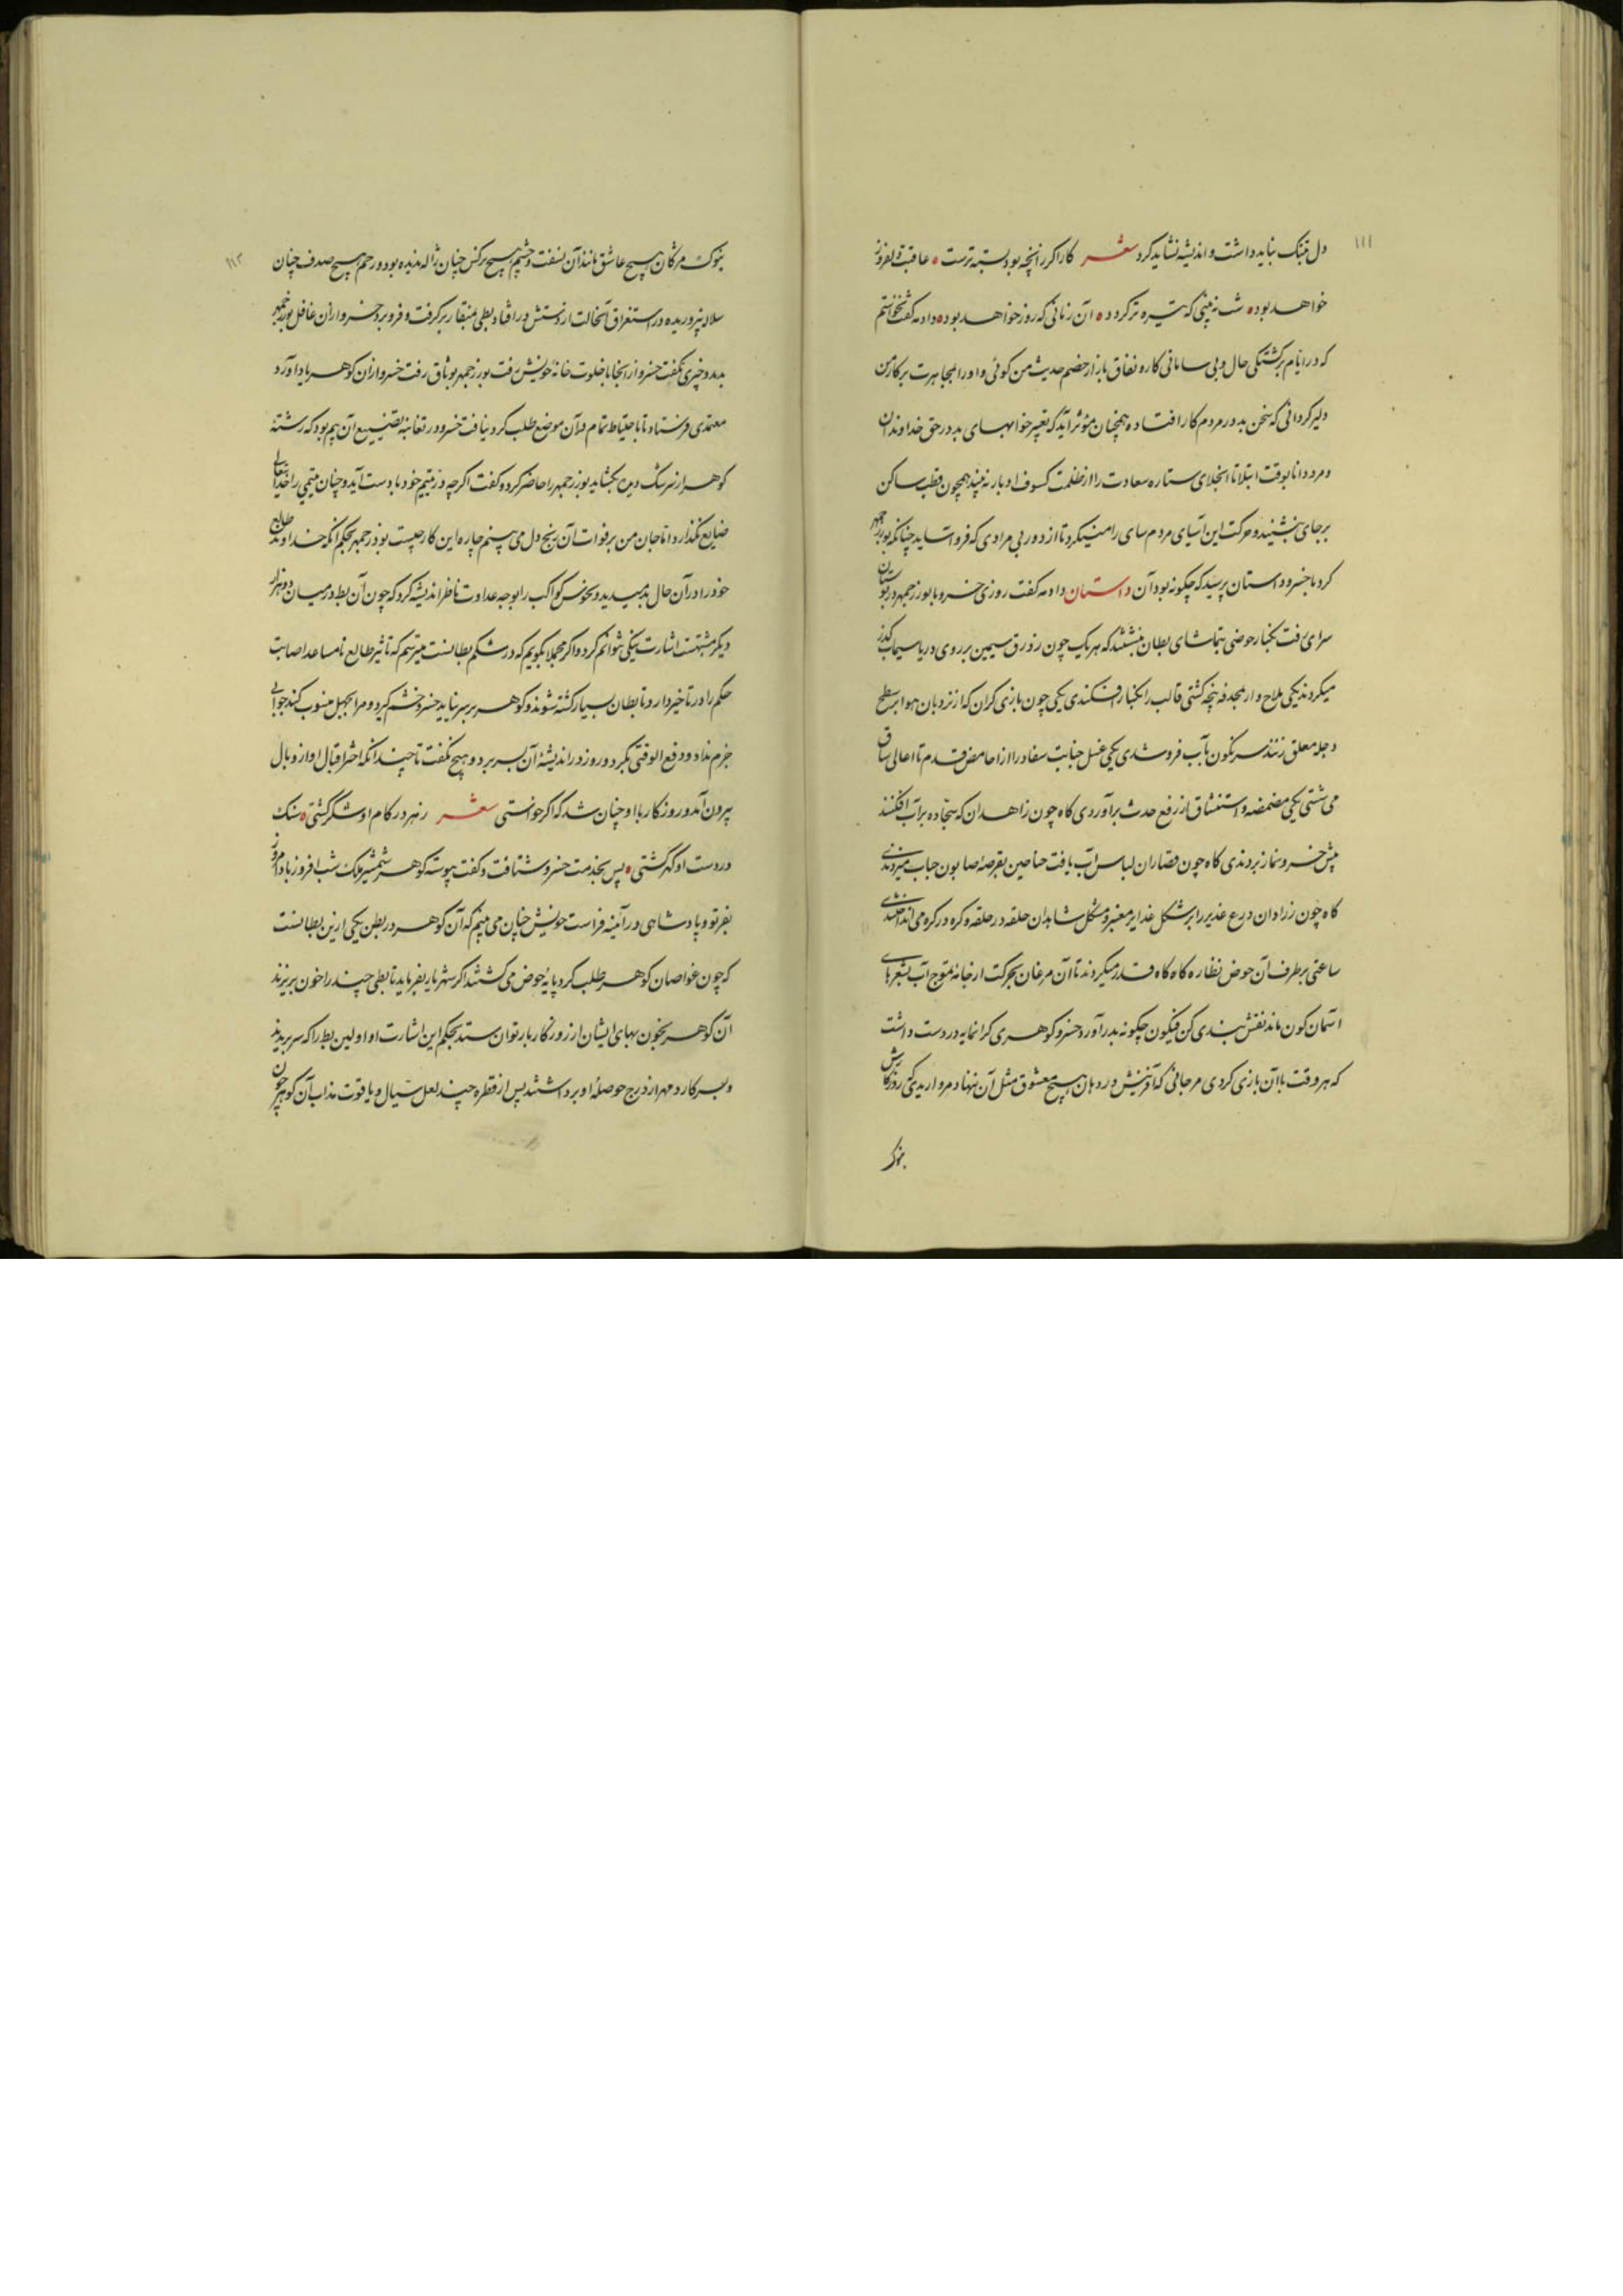 ۱۱۱
دل تنک نباید داشت و اندیشه نشاید کرد شعر کار اکر زانچه بود بسته ترست عاقبت دلفروز
خواهد بود شب نه بینی که تیره تر کردد آن زمانی که روز خواهد بود دادمه کفت نخواستم
که در ایام برکشتکی حال و بی سامانی کار و نفاق بازار خصم حدیث من کوئی و او را بمجاهرت بر کار من
دلیر کردانی که سخن بد در مردم کار افتاده همچنان مؤثر آید که تعبیر خوابهای بد در حق خداوندان
و مرد دانا بوقت ابتلا تا انجلای ستاره سعادت را از ظلمت کسوف ادبار نه بیند همچون قطب ساکن
بر جای بنشیند و حرکت این آسیای مردم سای را می نکرد تا از دور بی مرادی کی فرو آساید چنانکه بوزرجمهر
کرد با خسرو داستان پرسید که چکونه بود آن داستان دادمه کفت روزی خسرو با بوزرجمهر در بوستان
سرای رفت بکنار حوضی بتماشای بطان بنشستند که هر یک چون زورق سیمین بر روی دریا سیماب کذر
میکردند یکی ملاح وار بمجدفه پنجه کشتی قالب را بکنار افکندی یکی چون بازی کران که از نردبان هوا بر سطح
دجله معلق زنند سرنکون بآب فرو شدی یکی غسل جنابت سفاد را از اخامص قدم تا اعالی ساق
می شستی یکی مضمضه و استنشاق از رفع حدث برآوردی کاه چون زاهدان که سجاده بر آب افکنند
پیش خسرو نماز بردندی کاه چون قصاران لباس آب بافت جناحین بقرصه صابون حباب میزدندی
کاه چون زرادان درع غدیر را بر شکل غدایر معنبر و مشکل شاهدان حلقه در حلقه و کره در کره می انداختندی
ساعتی بر طرف آن حوض نظاره کاه کاه قدر میکردند تا آن مرغان بحرکت از خانه تموج آب بشعرهای
آسمان کون ماند نقش بندی کن فیکون چکونه بدر آورد خسرو کوهری کرانمایه در دست داشت
که هر وقت با آن بازی کردی مرجانی که آفرینش در دهان هیچ معشوق مثل آن ننهاد مرواریدی که روزکارش
بنوک
۱۱۲
بنوک مژکان هیچ عاشق مانند آن نسفت و چشم هیچ نرکس چنان ژاله ندیده بود و رحم هیچ صدف چنان
سلاله نپروریده در استغراق آنحالت از دستش درافتاد بطی منقار برکرفت و فرو برد خسرو از آن غافل بوزرجمهر
بدید و چیزی نکفت خسرو از آنجا با خلوت خانه خویش رفت بوزرجمهر بوثاق رفت خسرو از آن کوهر یاد آورد
معتمدی فرستاد تا باحتیاط تمام در آن موضع طلب کرد نیافت خسرو در تغابنه تضییع آن بیم بود که رشته
کوهر از سرشک دیده بکشاید بوزرجمهر را حاضر کرد و کفت اکرچه در یتیم خود با دست آید و چنان یتیمی را خدایتعالی
ضایع نکذارد اما جان من بر فوات آن رنج دل می بینم چاره این کار چیست بوذرجمهر بحکم آنکه خداوند طالع
خود را در آن حال بد میدید و نحوس کواکب را بوجه عداوت ناظر اندیشه کرد که چون آن بط در میان دو هزار
دیکر مشتبهست اشارت بیکی نتوانم کرد و اکر مجملا بکویم که در شکم بطانست میترسم که تاثیر طالع نامساعد اصابت
حکم را در تاخیر دارد تا بطان بسیار کشته شوند و کوهر بر سر نیاید خسرو خشم کیرد و مرا بجهل منسوب کند جوابی
جزم نداد و دفع الوقتی بکرد و روز در اندیشهٔ آن بسر برد و هیچ نکفت تا چندانکه اختر اقبال او از وبال
بیرون آمد و روزکار با او چنان شد که اکر خواستی شعر زهر در کام او شکر کشتی سنک
در دست او کهر کشتی پس بخدمت خسرو شتافت و کفت پیوسته کوهر شمشیر ملک شب افروز باد امروز
بفر تو و پادشاهی در آئینه فراست خویش چنان می بینم که آن کوهر در بطن یکی ازین بطانست
که چون غواصان کوهر طلب کرد پایهٔ حوض می کشتند اکر شهریار بفرماید تا بطی چند را خون بریزند
آن کوهر بخون بهای ایشان از روزکار باز توان ستد بحکم این اشارت او اولین بط را که سر بریدند
و بسر کارد مهر از درج حوصلهٔ او برداشتند پس از قطره چند لعل سیال و یاقوت مذاب آن کوهر چون